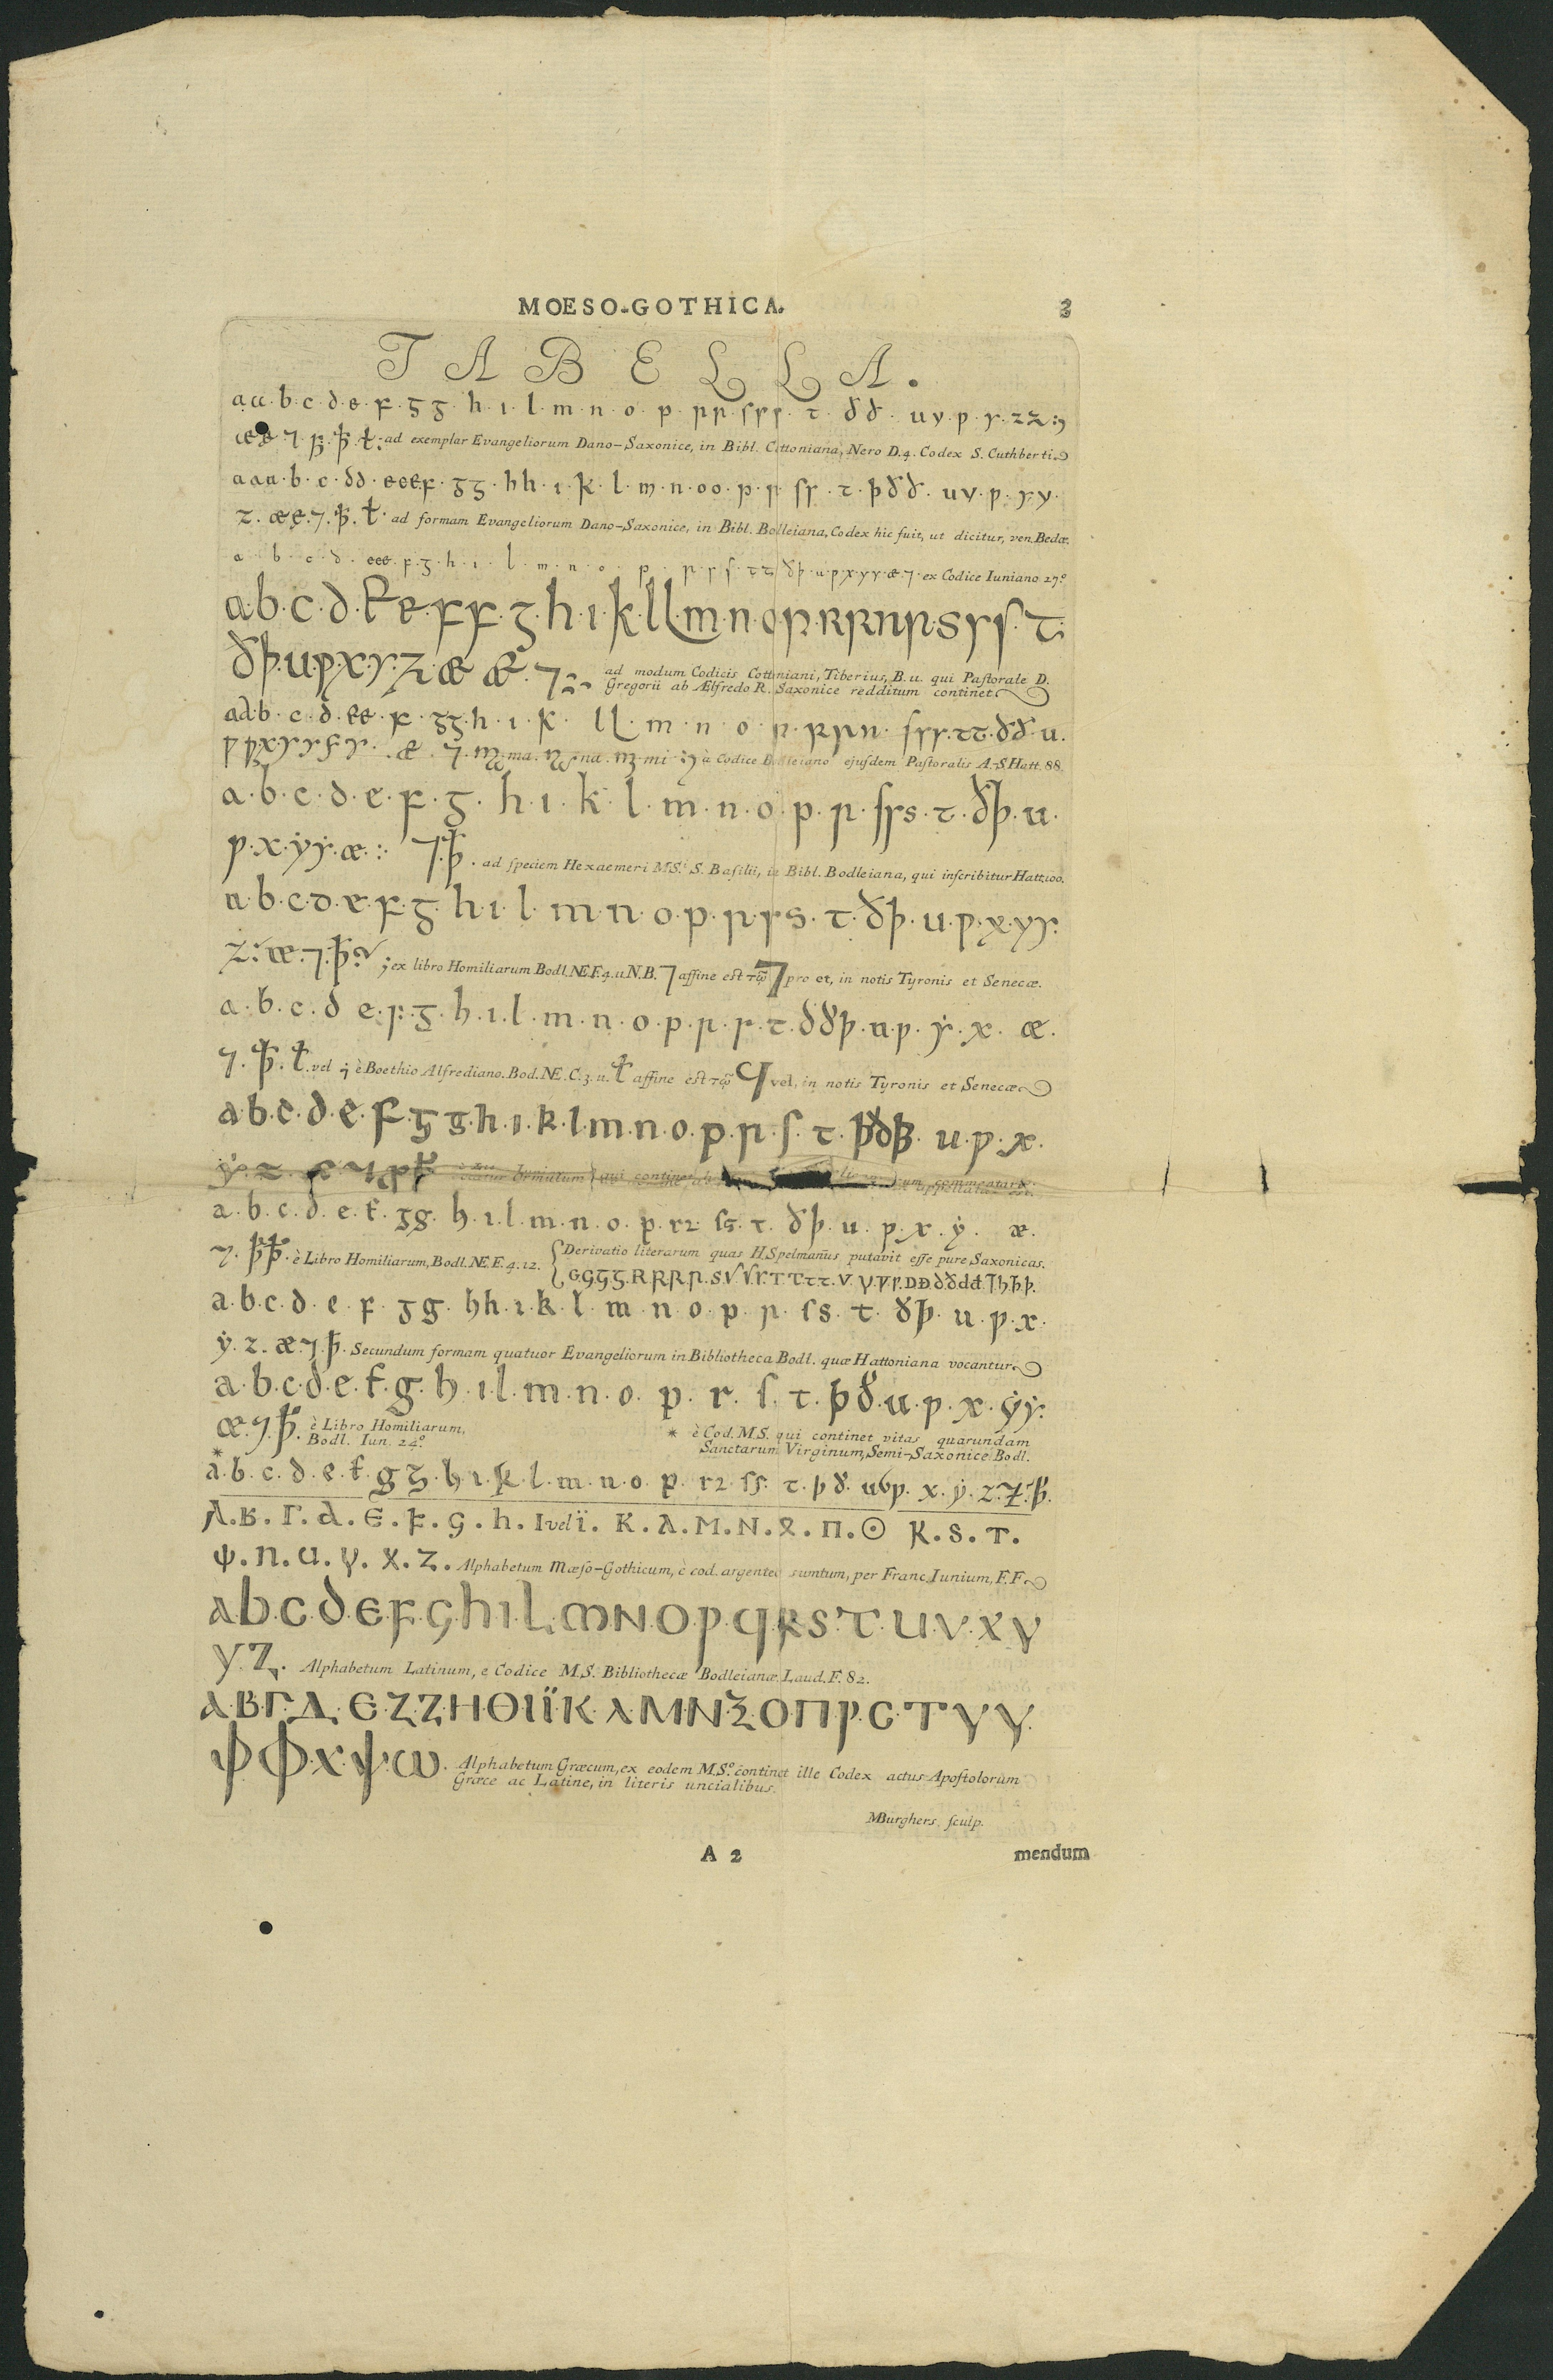 MOESO-GOTHICA. 3
TABELLA.
a a · b · c · ꝺ · e · ꝼ · ᵹ ᵹ · h · ı · l · m · n · o · p · ꞃ ꞃ · ſ ſ ꞅ · ꞇ · ð ð · u v · ƿ · ẏ · z z :
æ æ · ⁊ · ꝥ · ꝥ · ꝉ : ad exemplar Evangeliorum Dano-Saxonice, in Bibl. Cottoniana, Nero D.4. Codex S. Cuthberti
a a a · b · c · ꝺ ꝺ · e e e ꝼ · ᵹ ᵹ · h h · ı · k · l · m · n · o o · p · ꞃ · ſ ꞅ · ꞇ · þ ð ð · u v · ƿ · ẏ y ·
z · æ ę · ⁊ · ꝥ · ꝉ · ad formam Evangeliorum Dano-Saxonice, in Bibl. Bolleiana, Codex hic fuit, ut dicitur, ven. Bedæ.
a · b · c · ꝺ · e e e · ꝼ · ᵹ · h · ı · l · m · n · o · p · ꞃ · ꞅ · ſ · ꞇ ꞇ · ð þ · u · ƿ · x · y y · æ · ⁊ · ex Codice Iuniano 27.º
a b · c · ꝺ · E e · ꝼ ꝼ · ᵹ · h · ı · k · l l m · n · o p · R ꞃ n ꞃ · s ꞅ ſ · ꞇ ·
ð þ · u · ƿ · x · y · z · æ Æ · ⁊ : ad modum Codicis Cottoniani, Tiberius, B. u. qui Paſtorale D.
Gregorii ab Ælfredo R. Saxonice redditum continet
a a b · c · ꝺ · e e · ꝼ · ᵹ ᵹ · h · ı · k · l l · m · n · o · p · ꞃ ꞃ n · ſ ſ ꞅ · ꞇ ꞇ · ð ð · u ·
ma · na · mi · à Codice Bodleiano ejuſdem Paſtoralis A.-S. Hatt. 88.
a · b · c · ꝺ · e · ꝼ · ᵹ · h · ı · k · l · m · n · o · p · ꞃ · ſ ꞅ s · ꞇ · ð þ · u ·
ƿ · x · ẏ ẏ · æ · : ⁊ · ꝥ · ad ſpeciem Hexaemeri MS.ᵗⁱ S. Baſilii, in Bibl. Bodleiana, qui inſcribitur Hatt. 100.
a · b · c · ꝺ · e · ꝼ · ᵹ · h · ı · l · m · n · o · p · ꞃ · ꞅ s · ꞇ · ð þ · u · ƿ · x · y ẏ :
z : æ · ⁊ · ꝥ ; ex libro Homiliarum Bodl. NE. F. 4. u. N.B. ⁊ affine est τῷ ⁊ pro et, in notis Tyronis et Senecæ.
a · b · c · ꝺ e · ꝼ · ᵹ · h · ı · l · m · n · o · p · ꞃ · ꞅ · ꞇ · ð ð þ · u · ƿ · ẏ · x · æ ·
⁊ · ꝥ · ꝉ · vel ⁊ è Boethio Alfrediano. Bod. NE. C. 3. u. ꝉ affine est τῷ vel, in notis Tyronis et Senecæ
a b · c · ꝺ · e · ꝼ · ᵹ g · h · ı · k · l · m · n · o · p · ꞃ · ſ · ꞇ · þ ð ꝥ · u · ƿ · x ·
a · b · c · ꝺ · e · f · ᵹ g · h · ı · l · m · n · o · p · r ꝛ · ſ s · ꞇ · ð þ · u · ƿ · x · ẏ · æ ·
⁊ · ꝥ ꝥ · è Libro Homiliarum, Bodl. NE. F. 4. 12. { Derivatio literarum quas H. Spelmanus putavit eſſe pure Saxonicas.
a · b · c · ꝺ · e · ꝼ · ᵹ g · h h · ı · k · l · m · n · o · p · ꞃ · ſ s · ꞇ · ð þ · u · ƿ · x ·
ẏ · z · æ · ⁊ · ꝥ · Secundum formam quatuor Evangeliorum in Bibliotheca Bodl. quæ Hattoniana vocantur
a · b · c · ꝺ · e · f · g · h · ı l · m · n · o · p · r · ſ · ꞇ · þ ð · u · ƿ · x · ẏ ẏ :
æ · ⁊ · ꝥ · è Libro Homiliarum,
Bodl. Iun. 24.º
* è Cod. M.S. qui continet vitas quarundam
Sanctarum Virginum, Semi-Saxonice Bodl.
* a · b · c · ꝺ · e · f · g ᵹ · h · ı · k · l · m · n · o · p · r ꝛ · ſ ſ · ꞇ · þ ð · u v ƿ · x · ẏ · z · ⁊ · ꝥ ·
𐌰 . 𐌱 . 𐌲 . 𐌳 . 𐌴 . 𐍆 . 𐌾 . 𐌷 . 𐌹 vel 𐌹̈ . 𐌺 . 𐌻 . 𐌼 . 𐌽 . 𐍉 . 𐍀 . 𐍈 𐍂 . 𐍃 . 𐍄 .
𐌸 . 𐌿 . 𐌵 . 𐍅 . 𐍇 . 𐌶 . Alphabetum Mæſo-Gothicum, è cod. argenteo sumtum, per Franc. Iunium, F. F.
a b · c · ꝺ · e · ꝼ · g · h · ı · l · m N · O · p · q · R · S · T · U · V · X · Y
y · z · Alphabetum Latinum, e Codice M.S. Bibliothecæ Bodleianæ Laud. F. 82.
Α · Β · Γ · Δ · Ε · Ζ · Ζ · Η · Θ · Ι Ϊ · Κ · Λ · Μ · Ν · Ξ · Ο · Π · Ρ · С · Τ · Υ Υ ·
φ Φ · Χ · Ψ · ω · Alphabetum Græcum, ex eodem M.S.º continet ille Codex actus Apoſtolorum
Græce ac Latine, in literis uncialibus.
MBurghers ſculp.
A 2 mendum